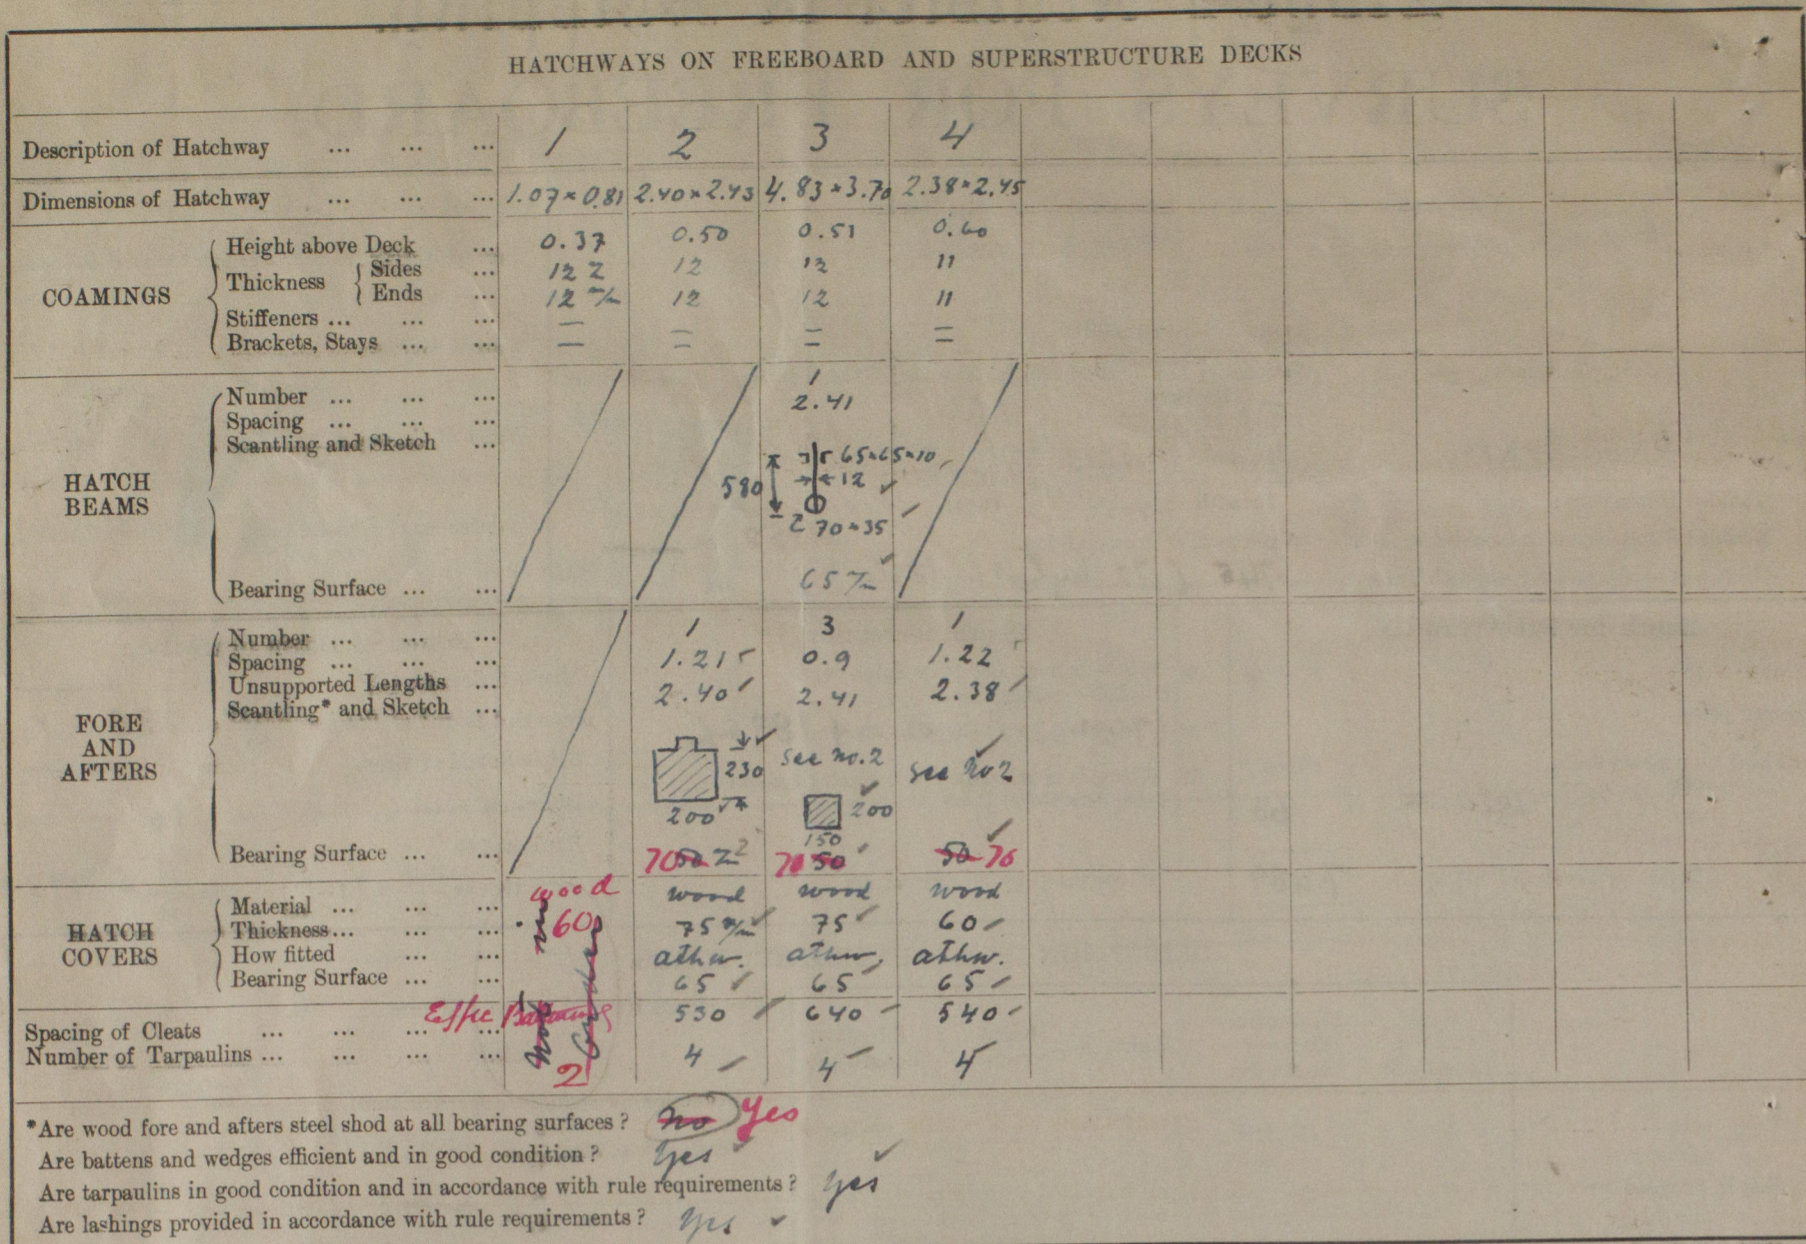 HATCHWAYS ON FREEBOARD AND SUPERSTRUCTURE DECKS
Description of Hatchway ... ... ... 1 2 3 4
Dimensions of Hatchway ... ... ... 1.07×0.81 2.40×2.43 4.83×3.70 2.38×2.45
COAMINGS
Height above Deck ... 0.37 0.50 0.51 0.60
Thickness Sides ... 12 12 12 11
Ends ... 12 12 12 11
Stiffeners ... ... ... = = = =
Brackets, Stays ... ...
HATCH BEAMS
Number ... ... ... 1
Spacing ... ... ... 2.41
Scantling and Sketch ... 65×65×10
580 12
70×35
Bearing Surface ... ... 65
FORE AND AFTERS
Number ... ... ... 1 3 1
Spacing ... ... ... 1.21 0.9 1.22
Unsupported Lengths ... 2.40 2.41 2.38
Scantling* and Sketch ...
230 see no.2 see no 2
200 200
150
Bearing Surface ... ... 70 50 70 50 50 70
HATCH COVERS
Material ... ... ... wood wood wood wood
Thickness... ... ... 60 75 75 60
How fitted ... ... athw. athw. athw.
Bearing Surface ... ... 65 65 65
Spacing of Cleats ... ... ... ... Effic 530 640 540
Number of Tarpaulins ... ... ... ... 2 4 4 4
*Are wood fore and afters steel shod at all bearing surfaces? no Yes
Are battens and wedges efficient and in good condition? Yes
Are tarpaulins in good condition and in accordance with rule requirements? yes
Are lashings provided in accordance with rule requirements? yes